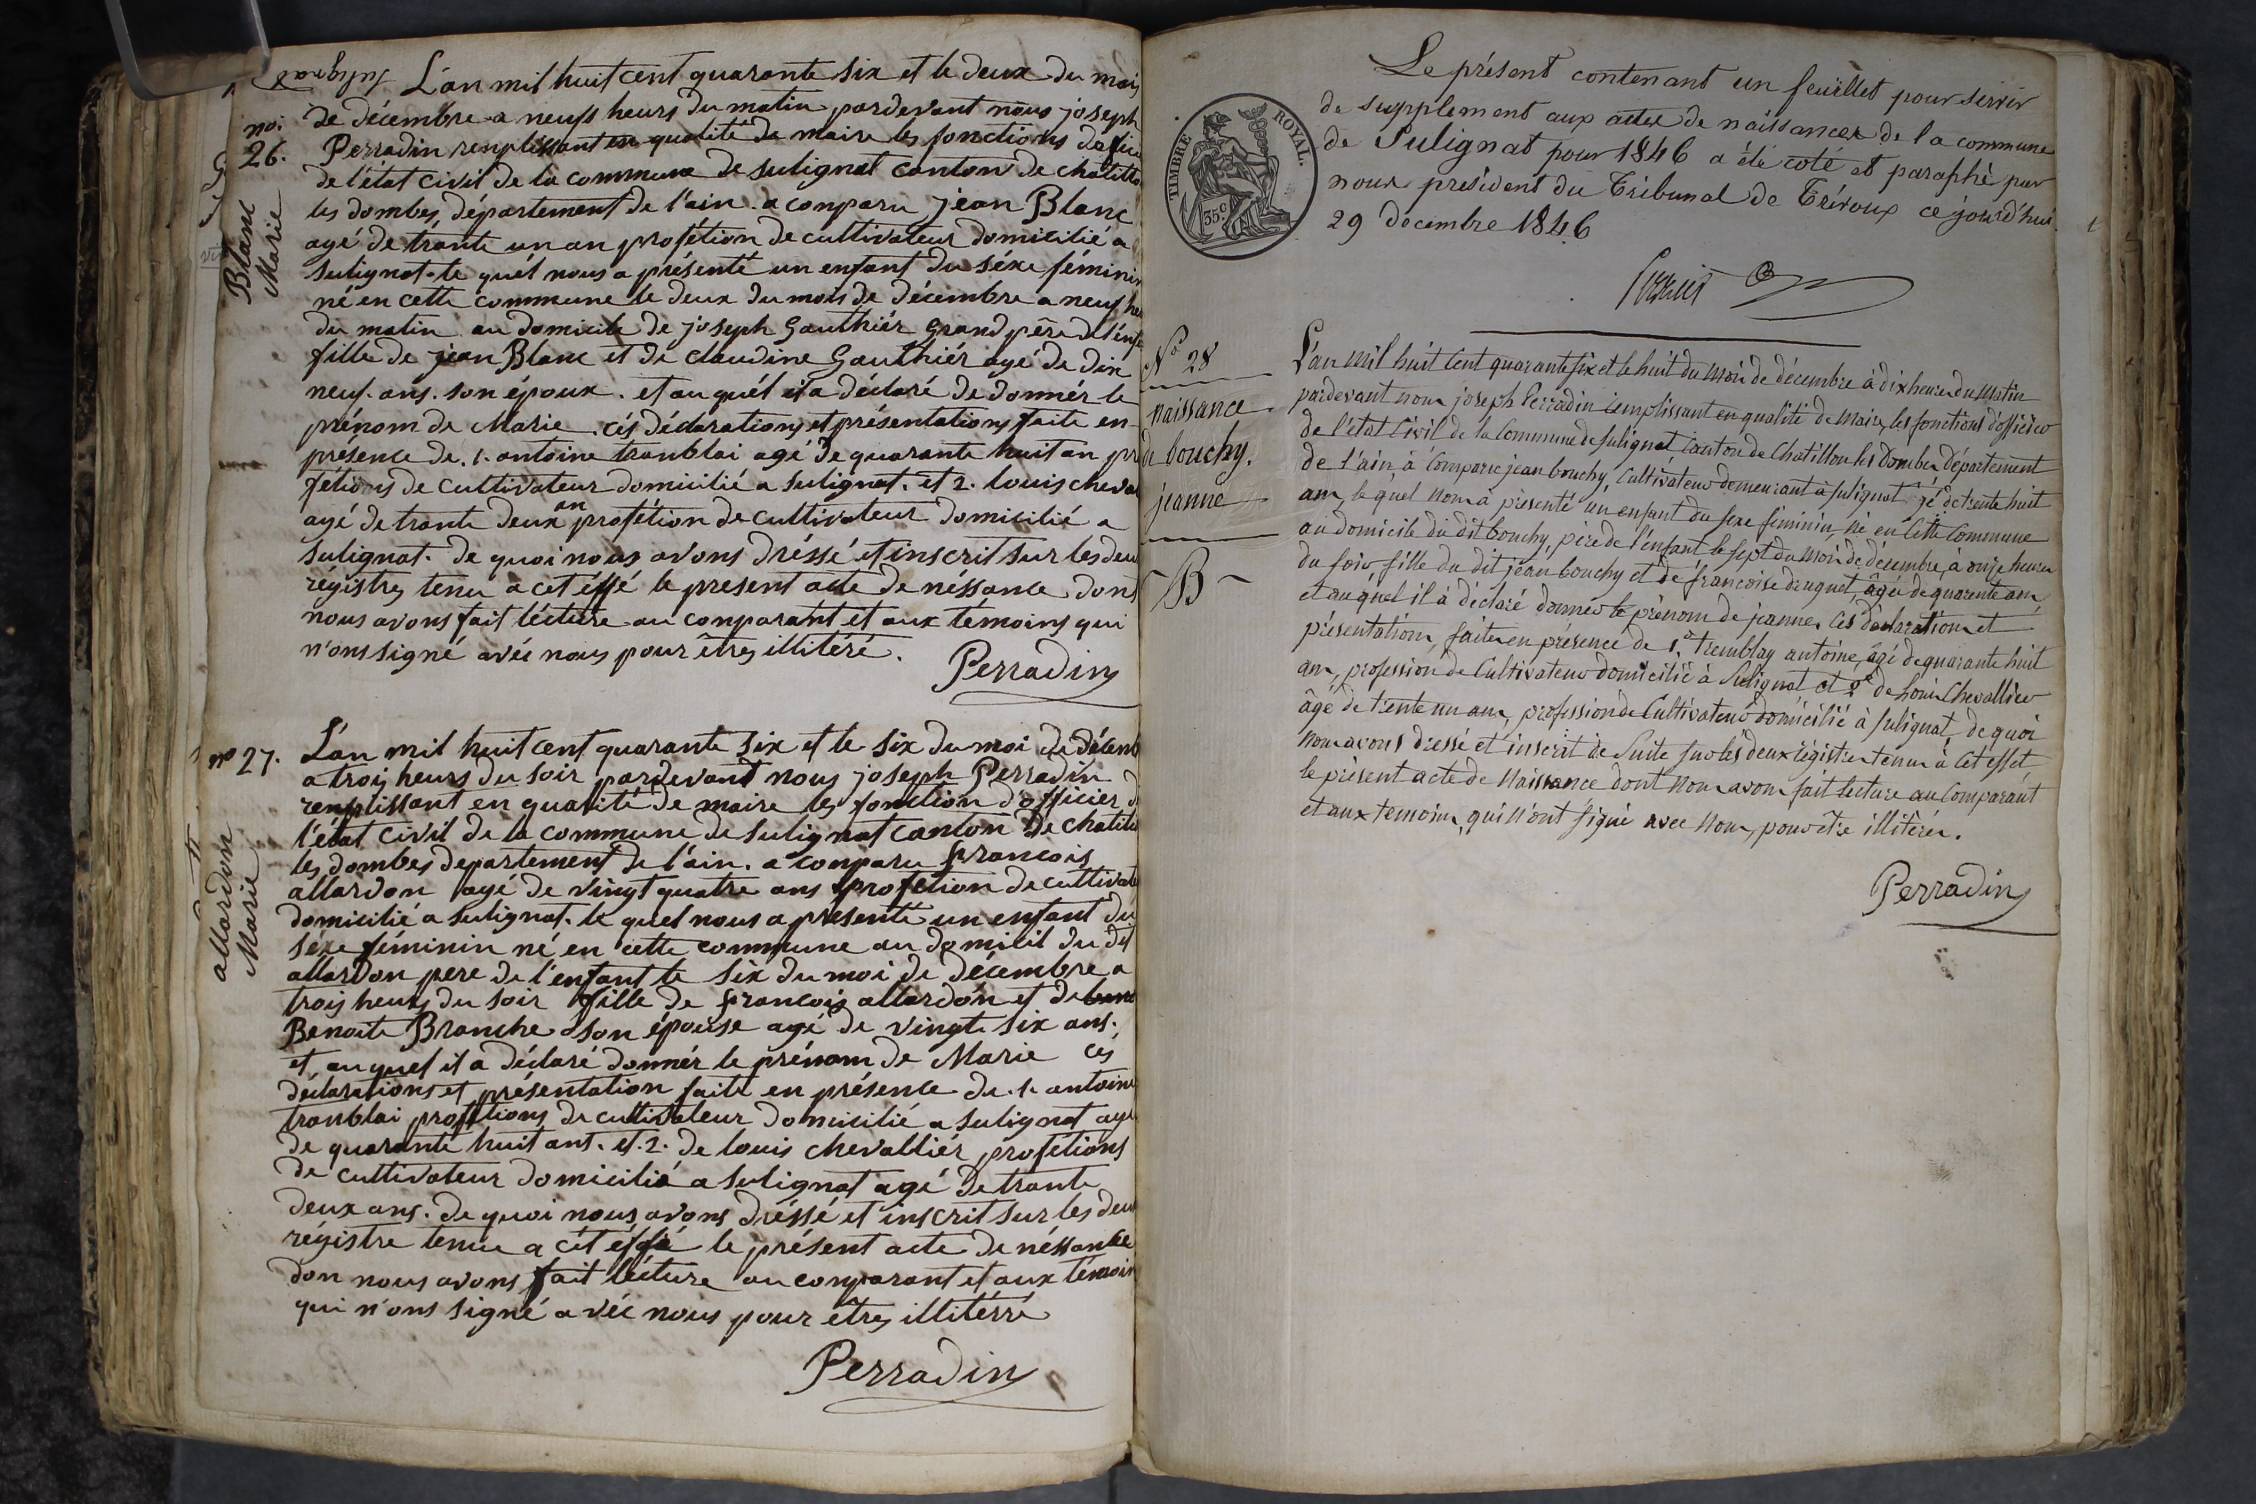 Sulignat
L'an mil huit cent quarante six et le deux du mois
de décembre a neufs heurs du matin pardevant nous joseph
no:
26.
Perradin remplissant en qualité de maire les fonctions
de l'état civil de la commune de sulignat canton de chatillo
les dombes, département de l'ain. a conparu jean Blanc
agé de trante un an profétion de cultivateur domicilié a
Blanc
Marie
sulignat. le quél nous a présenté un enfant du séxe féminin
né en cette commune le deux du mois de décembre a neuf he
du matin au domicile de joseph Gauthiér Grand père de l'enf
fille de jean Blanc et de claudine Gauthiér agé de dix
neuf. ans. son époux. et au quél il a déclaré de donnér le
prénom de Marie. cés déclarations et présentations faite en
présence de. 1. antoine tranblai agé de quarante huit an pr
fétions de cultivateur domicilié a sulignat. et 2. louis cheval
agé de trante deux an profétion de cultivateur domicilié a
sulignat. de quoi nous avons dréssé et inscrit sur les deu
régistres tenu a cet éffé le present acte de néssance dont
nous avons fait lécture au conparant et aux témoins qui
n'ons signé avéc nous pour êtres illitéré.
Perradin
no 27.
L'an mil huit cent quarante six et le six du moi de décemb
a trois heurs du soir pardevant nous joseph Perradin
remplissant en qualité de maire les fonction d'officier d
l'état civil de la commune de sulignat canton de chatillo
les dombes departement de l'ain. a conparu francois
allardon agé de vingt quatre ans profétion de cultivate
allardon
Marie
domicilié a sulignat. le quel nous a présenté un enfant du
séxe féminin né en cette commune au domicil du dit
allardon pere de l'enfant le six du moi de décembre a
trois heurs du soir fille de francois allardon et de
Benoite Branche son épouse agé de vingt six ans.
et au quel il a déclaré donnér le prénom de Marie cés
déclarations et présentation faite en présence de. 1. antoine
tranblai profétions de cultivateur domicilié a sulignat agé
de quarante huit ans. et. 2. de louis chevalliér profétions
de cultivateur domicilié a sulignat agé de trante
deux ans. de quoi nous avons dréssé et inscrit sur les deu
régistre tenu a cét éffé le présent acte de néssance
don nous avons fait lécture au conparant et aux témoin
qui n'ons signé avéc nous pour êtres illitérré
Perradin
Le présent contenant un feuillet pour servir
de supplement aux actes de naissances de la commune
de Sulignat pour 1846 a été coté et paraphé par
nous president du Tribunal de Trévoux ce jourd'hui
29 décembre 1846
TIMBRE ROYAL.
35 c.
No 28
naissance
de bouchy.
jeanne
B
L'an mil huit cent quarante six et le huit du mois de décembre à dix heures du matin
pardevant nous joseph Perradin remplissant en qualité de Maire, les fonctions d'officier
de l'état Civil de la Commune de Sulignat, Canton de Chatillon les Dombes Département
de l'ain, à Comparu jean bouchy, Cultivateur demeurant à Sulignat âgé de trente huit
ans, le quel nous à présenté un enfant du sexe féminin, né en Cette Commune
au domicile du dit bouchy, père de l'enfant le sept du mois de décembre, à onze heures
du soir fille du dit jean bouchy et de françoise duguet, âgée de quarante ans,
et au quel il à déclaré donner le prénom de jeanne, Ces déclarations et
présentations, faites en présence de 1.o Tremblay antoine, âgé de quarante huit
ans, profession de Cultivateur domicilié à Sulignat et 2o de Louis Chevallier
âgé de trente un ans, profession de Cultivateur domicilié à Sulignat, de quoi
Nous avons dressé et inscrit de Suite sur les deux régistres tenus à Cet effet
le présent acte de Naissance dont Nous avons fait lecture au Comparant
et aux temoins, qui N'ont signé avec Nous, pour être illitérés.
Perradin